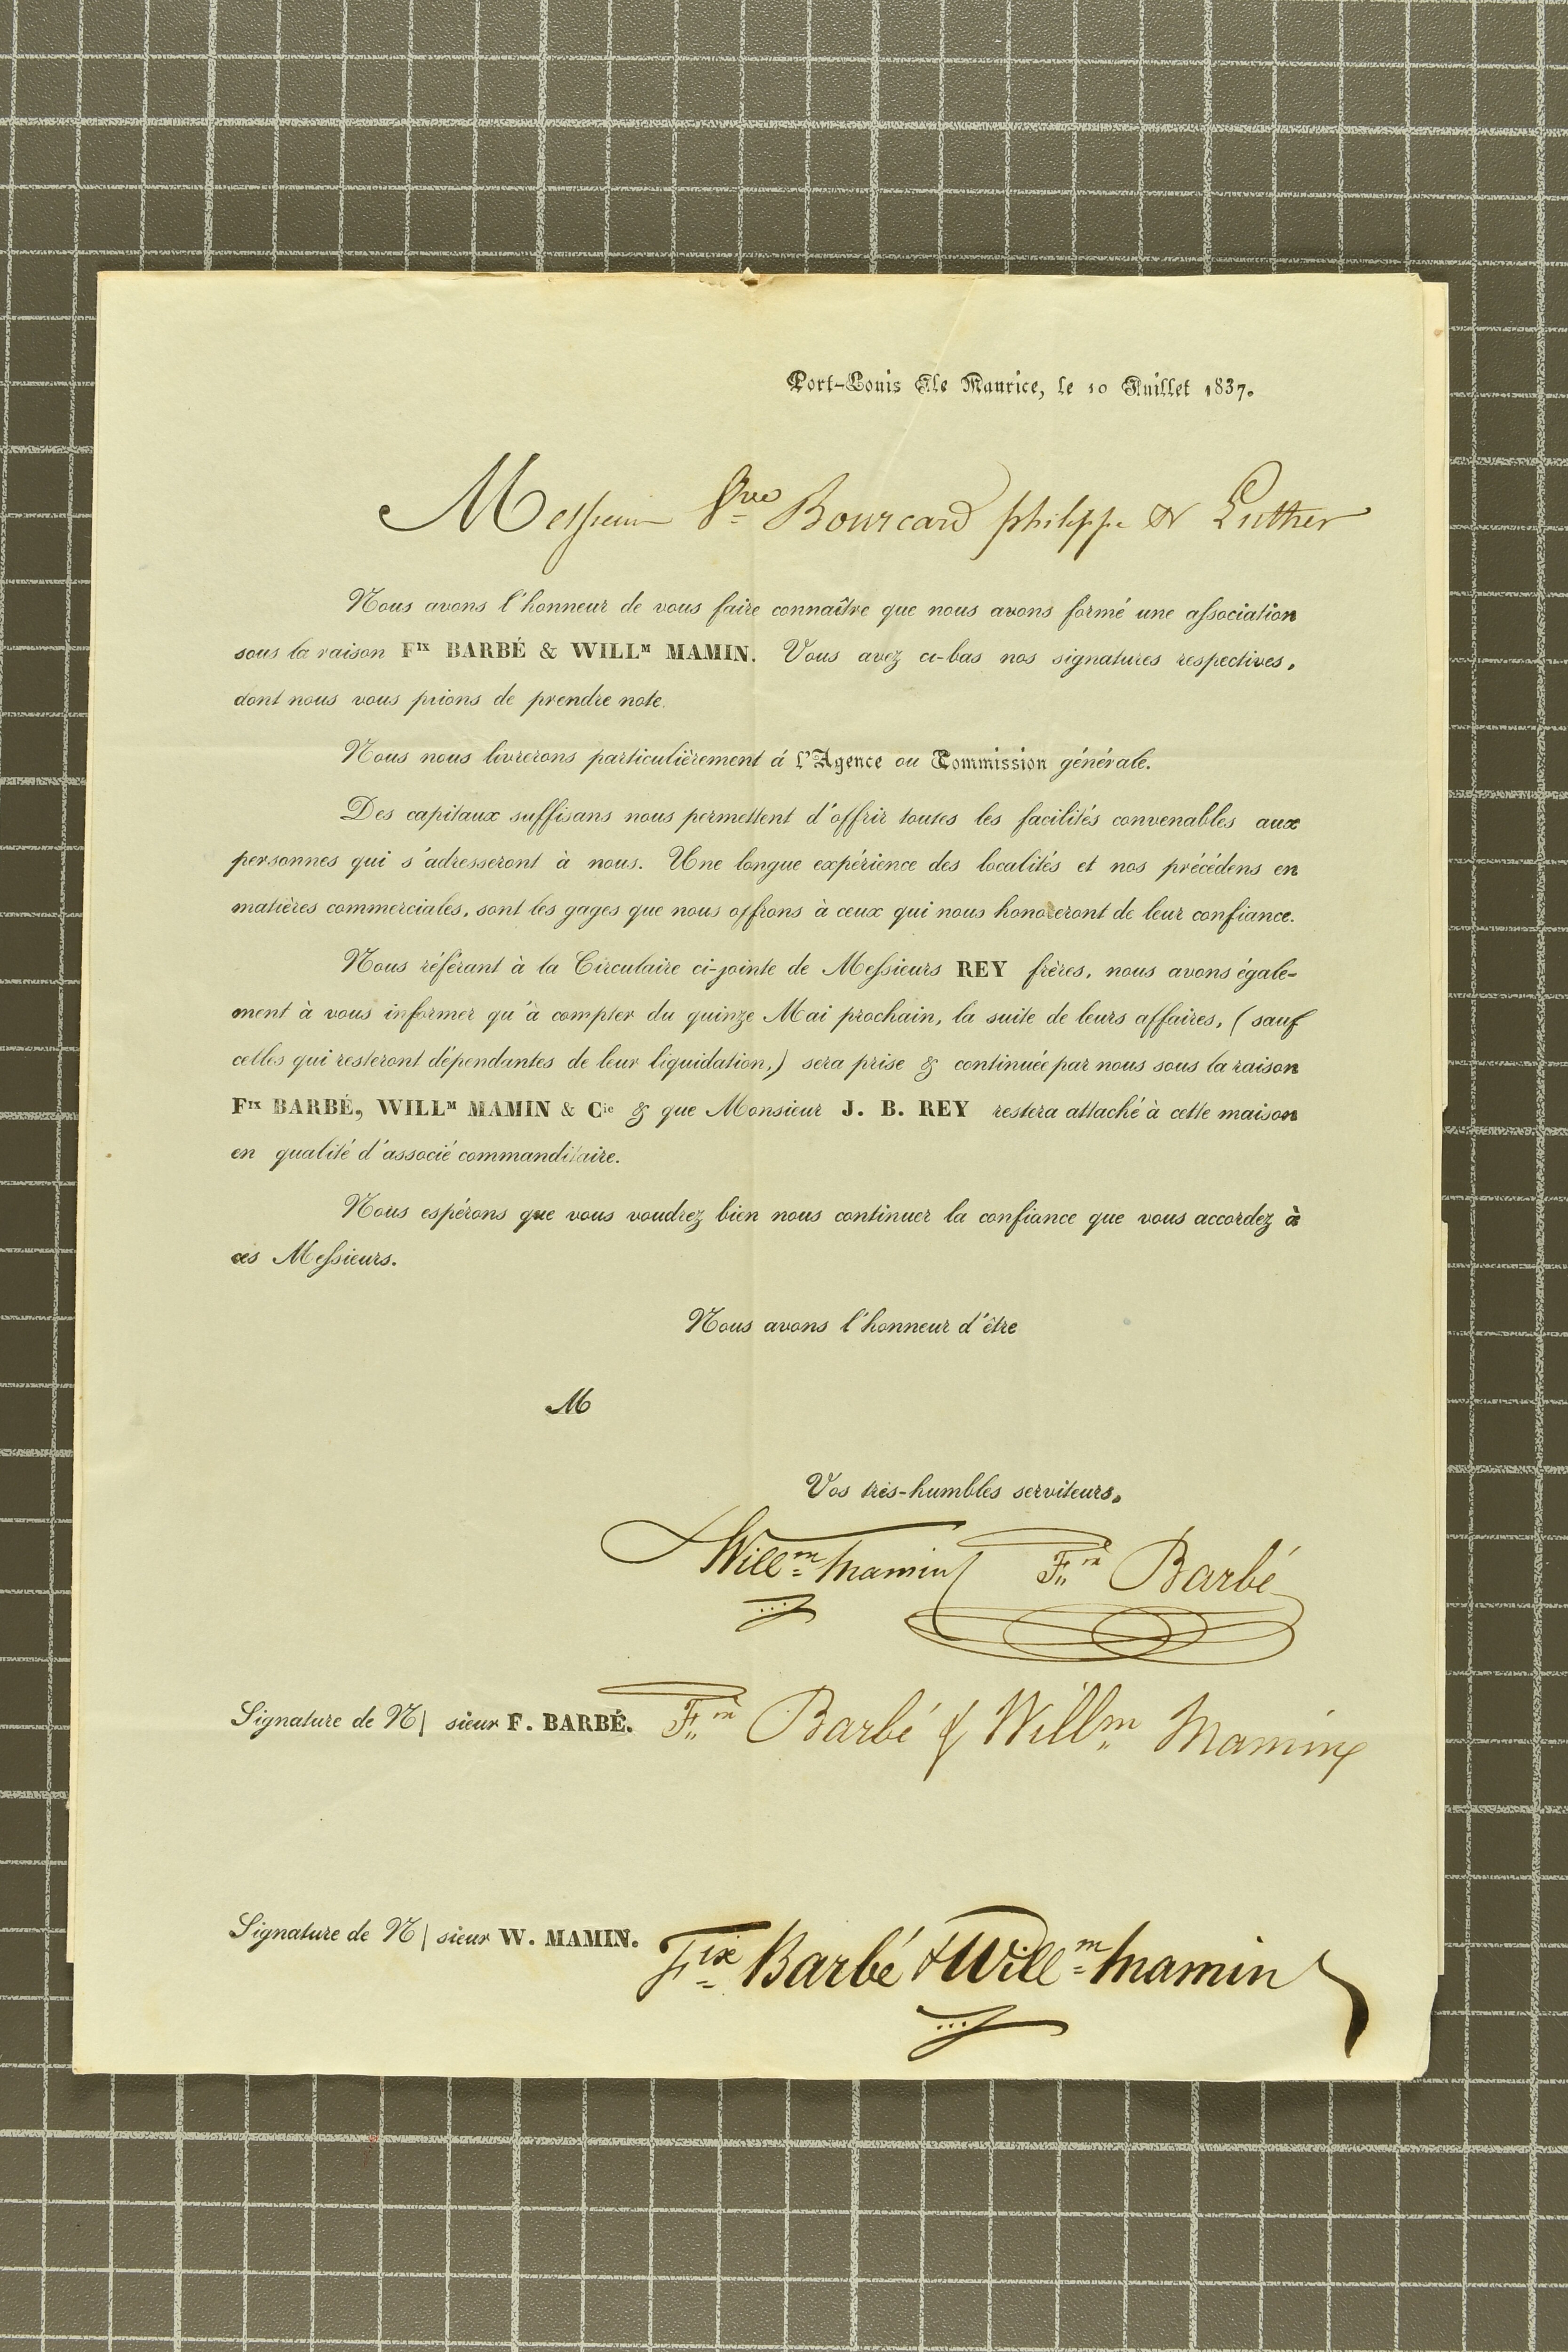 Port-Louis Ile Maurice, le 10 Juillet 1837.
Messieurs Vve Bourcard philippe & Luther
Nous avons l'honneur de vous faire connaître que nous avons formé une association
sous la raison Fix BARBÉ & WILLM MAMIN. Vous avez ci-bas nos signatures respectives,
dont nous vous prions de prendre note.
Nous nous livrerons particulièrement á l'Agence ou Commission générale.
Des capitaux suffisans nous permettent d'offrir toutes les facilités convenables aux
personnes qui s'adresseront à nous. Une longue expérience des localités et nos précédens en
matières commerciales, sont les gages que nous offrons à ceux qui nous honoreront de leur confiance.
Nous référant à la Circulaire ci-jointe de Messieurs REY frères, nous avons égale-
ment à vous informer qu'à compter du quinze Mai prochain, la suite de leurs affaires, (sauf
celles qui resteront dépendantes de leur liquidation,) sera prise & continuée par nous sous la raison
Fix BARBÉ, WILLM MAMIN & Cie & que Monsieur J. B. REY restera attaché à cette maison
en qualité d'associé commanditaire.
Nous espérons que vous voudrez bien nous continuer la confiance que vous accordez à
ces Messieurs.
Nous avons l'honneur d'être
M
Vos très-humbles serviteurs,
Willm Mamin Fix Barbé
Signature de N/ sieur F. BARBÉ. Fix Barbé & Willm Mamin
Signature de N/ sieur W. MAMIN. Fix Barbé & Willm Mamin